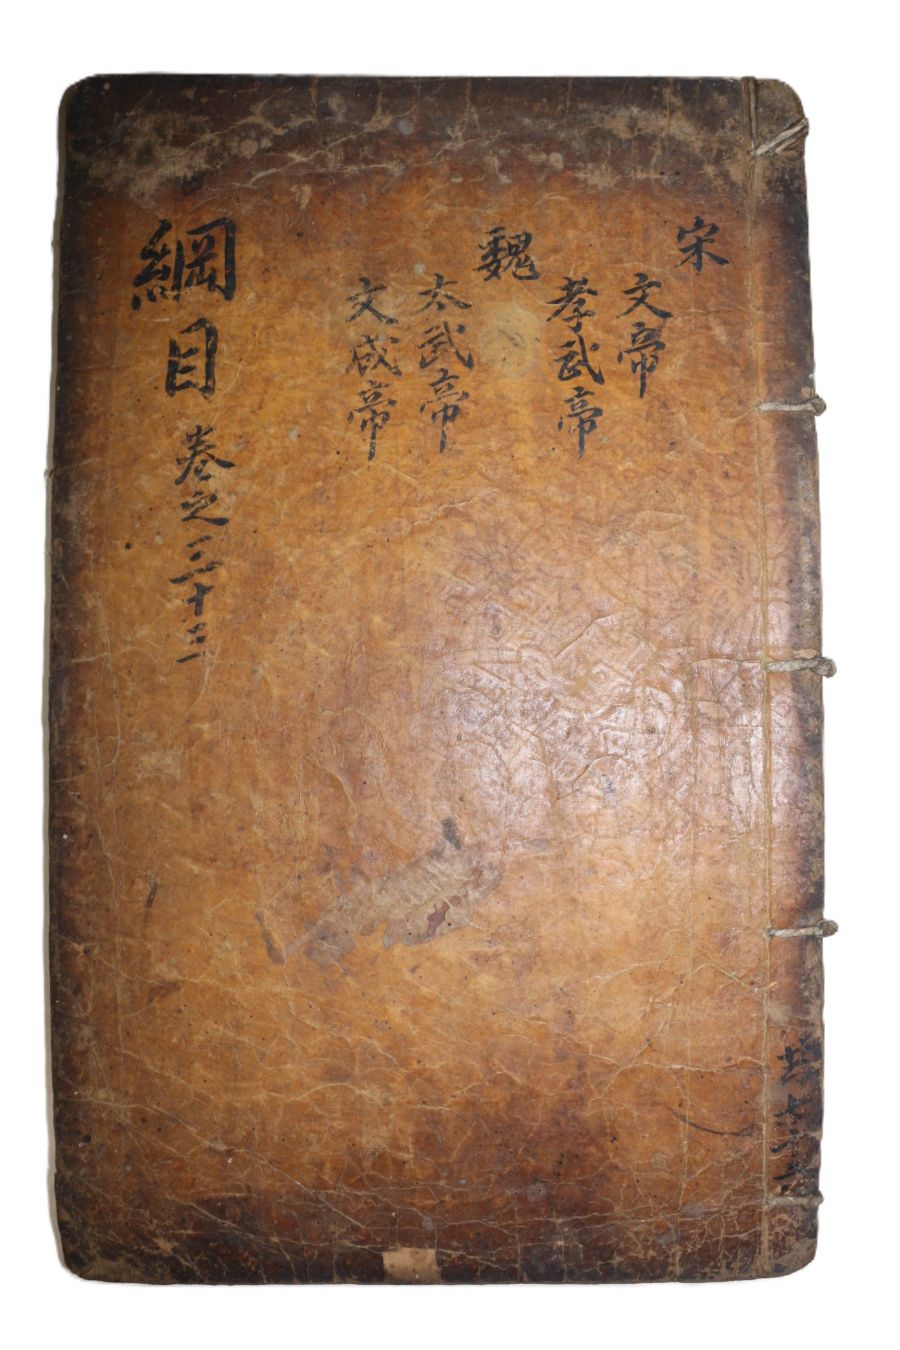 宋
文帝
孝武帝
魏
太武帝
文成帝
綱目 卷之三十三